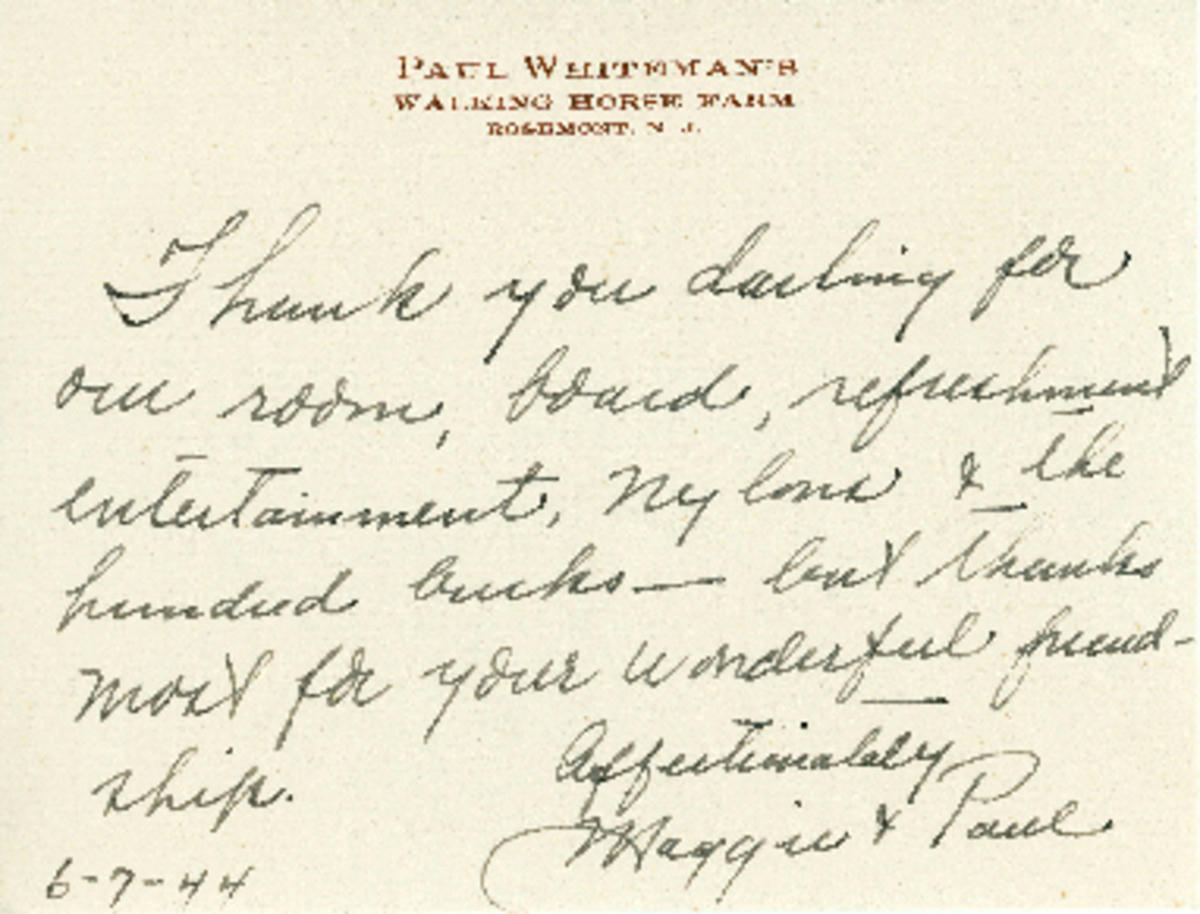 PAUL WHITEMAN'S
WALKING HORSE FARM
ROSEMONT, N. J.
Thank you darling for
our room, board, refreshment
entertainment, Nylons & the
hundred bucks — but thanks
most for your wonderful friend-
ship.
Affectionately
Maggie & Paul
6-7-44